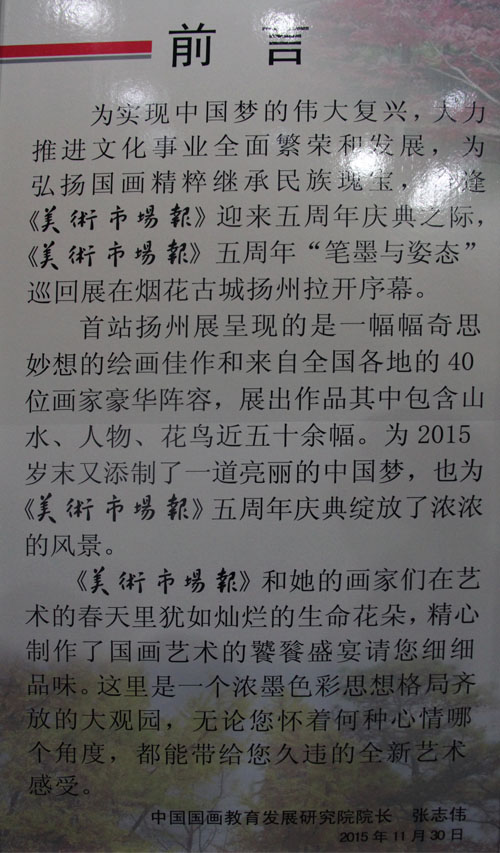 前言
为实现中国梦的伟大复兴，大力
推进文化事业全面繁荣和发展，为
弘扬国画精粹继承民族瑰宝，逢
《美術市場報》迎来五周年庆典之际，
《美術市場報》五周年“笔墨与姿态”
巡回展在烟花古城扬州拉开序幕。
首站扬州展呈现的是一幅幅奇思
妙想的绘画佳作和来自全国各地的 40
位画家豪华阵容，展出作品其中包含山
水、人物、花鸟近五十余幅。为 2015
岁末又添制了一道亮丽的中国梦，也为
《美術市場報》五周年庆典绽放了浓浓
的风景。
《美術市場報》和她的画家们在艺
术的春天里犹如灿烂的生命花朵，精心
制作了国画艺术的饕餮盛宴请您细细
品味。这里是一个浓墨色彩思想格局齐
放的大观园，无论您怀着何种心情哪
个角度，都能带给您久违的全新艺术
感受。
中国国画教育发展研究院院长 张志伟
2015 年 11 月 30 日